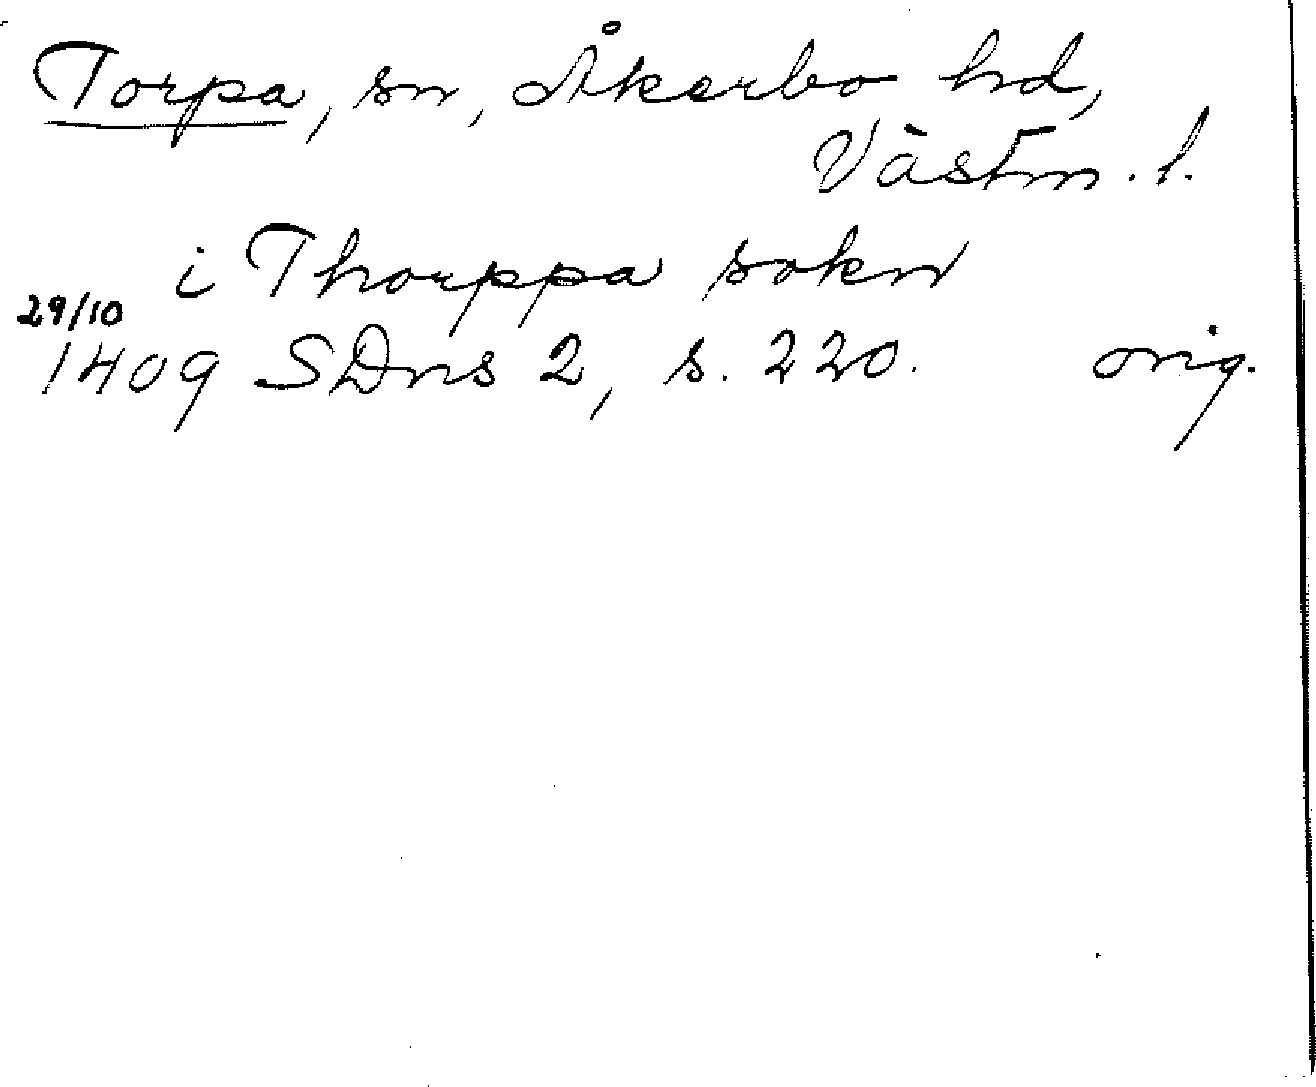 Torpa, sn, Åkerbo hd,
Västm. l.
i Thorppa sokn
29/10
1409 SDns 2, s. 220. orig.